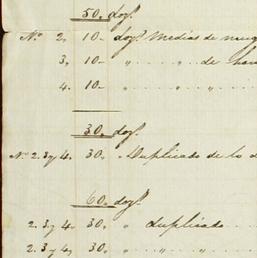 50. doz.s
N.o 2. 10- doz.s Medias de muge
3. 10- " .... " .. de
4. 10- " .... " .. "
30. doz.s
N.o 2.3 y 4. 30. Duplicado de lo
60. doz.s
2.3. y 4. 30 " duplicado
2.3 y 4. 30. " .. " .. "